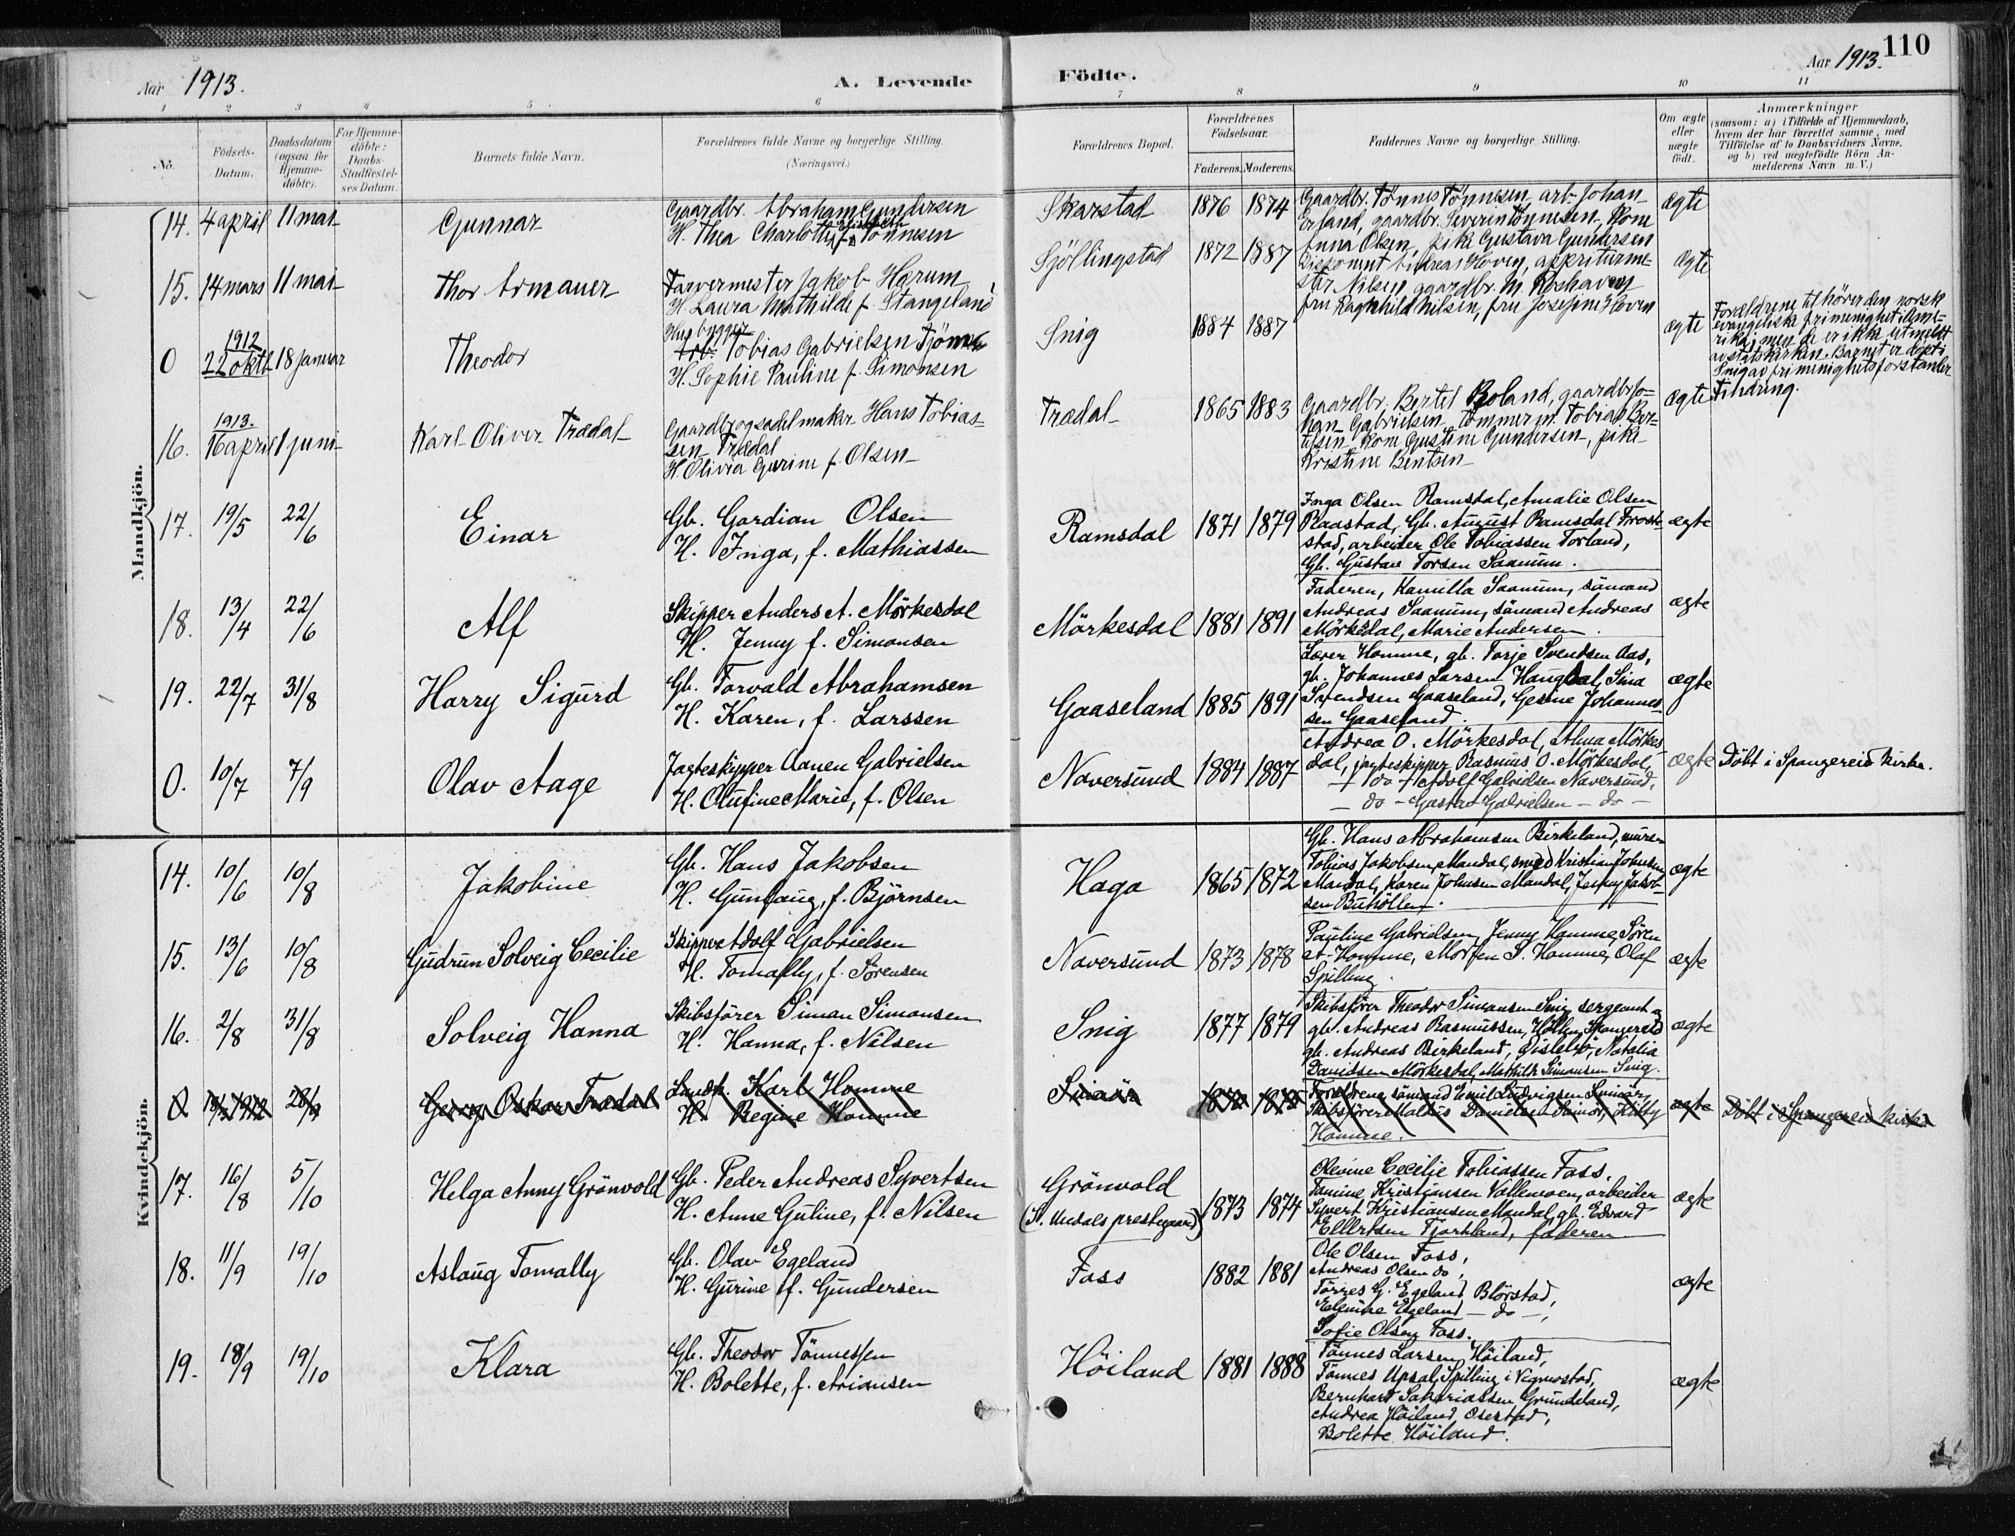 Aar 1913.
A. Levende
Födte.
Aar 1913.
110
1
2
3
4
5.
6
7
8
9
10
11
No.
Födsels-
Datum.
Daabsdatum
(ogsaa for
Hjemme-
döbte).
For Hjemme-
döbte:
Daabs-
Stadfæstel-
ses Datum.
Barnets fulde Navn.
Forældrenes fulde Navne og borgerlige Stilling
(Næringsvei.)
Forældrenes Bopæl.
Forældrenes
Födselsaar.
Faderens.
Moderens.
Faddernes Navne og borgerlige Stilling.
Om ægte
eller
uægte
födt.
Anmærkninger
(saasom: a) i Tilfælde af Hjemmedaab,
hvem der har forrettet samme, med
Tilföielse af to Daabsvidners Navne,
og b) ved uægtefödte Börn An-
melderens Navn m. V.)
Mandkjön.
14. 4 april 11 mai
Gunnar
Gaardbr. Abraham Gundersen
H. Thea Charlotte f. Tönnesen
Skarstad 1876 1874
Gaardbr. Tönnes Tönnesen, arb. Johan
Erfand, gaardbr. Severin Tönnesen, Kone
Anna Olsen, pike Gustava Gundersen
ægte
15. 14 mars 11 mai
Thor Armauer
Farvermester Jakob Harum
H. Laura Mathilde f. Stangeland
Sjöllingstad 1872 1887
Disponent Andreas Hoven, appriturme-
ster Nilsen, gaardbr. M. Röshaven
fru Ragnhild Nilsen, fru Josefine Hoven
ægte
0 1912
22 oktb 18 januar
Theodor
Husbygger
Tobias Gabrielsen Tjöm
H. Sophie Pauline f. Simonsen
Snig 1884 1887
ægte
Forældrene tilhörer den norsk
evangeliske frimenighet i Ame-
rika, men de er ikke utmeldt
av statskirken. Barnet er döpt i
Snig av frimenighetsforstander
Findring.
16. 1913.
16 april 1 juni
Karl Oliver Trædal
Gaardbr og sadelmaker Hans Tobias-
sen Trædal
H. Olivia Gurine f. Olsen
Trædal 1865 1883
Gaardbr. Bertel Boland, gaardbr Jo-
han Gabrielsen, tömmerm. Tobias Ber-
telsen, Kone Gustine Gundersen, pike
Kristine Bentsen
ægte
17. 19/5 22/6
Einar
Gb. Gardian Olsen
H. Inga, f. Mathiassen
Ramsdal 1871 1879
Inga Olsen Ramsdal, Amalie Olsen
Raastad, Gb. August Ramsdal Trost-
stad, arbeider Ole Tobiassen Torland,
Gb. Gustav Torsen Saanum.
ægte
18. 13/4 22/6
Alf
Skipper Anders A. Mörkesdal
H. Jenny f. Simonsen
Mörkesdal 1881 1891
Faderen, Kamilla Saanum, sömand
Andreas Saanum, sömand Andreas
Mörkesdal, Marie Andersen.
ægte
19. 22/7 31/8
Harry Sigurd
Gb. Torvald Abrahamsen
H. Karen, f. Larssen
Gaaseland 1885 1891
Lærer Homme, gb. Torje Svendsen Aas,
gb. Johannes Larsen Haugdal, Sina
Svendsen Gaaseland, Gesine Johannes-
sen Gaaseland.
ægte
0. 10/7 7/9
Olav Aage
Jagteskipper Aanen Gabrielsen
H. Olufine Marie, f. Olsen
Naversund 1884 1887
Andrea O. Mörkesdal, Alma Mörkes-
dal, jagteskipper Rasmus O. Mörkesdal,
— do — Adolf Gabrielsen Naversund,
— do — Gustav Gabrielsen — do —
ægte
Döbt i Spangereid kirke.
Kvindekjön.
14. 10/6 10/8
Jakobine
Gb. Hans Jakobsen
H. Gunlaug, f. Björnsen
Haga 1865 1872
Gb. Hans Abrahamsen Birkeland, murer
Tobias Jakobsen Mandal, smed Kristian Johnsen
Mandal, Karen Johnsen Mandal, Jenny Jakob-
sen Buhöllen.
ægte
15. 13/6 10/8
Gudrun Solveig Cecilie
Skipper Adolf Gabrielsen
H. Tomally, f. Sörensen
Naversund 1873 1878
Pauline Gabrielsen, Jenny Homme, Sören
A. Homme, Morten S. Homme, Olaf
Spilling.
ægte
16. 2/8 31/8
Solveig Hanna
Skibsförer Simon Simonsen
H. Hanna, f. Nilsen
Snig 1877 1879
Skibsförer Theodor Simonsen Snig, sergeant og
gb. Andreas Rasmussen, Höllen, Spangereid
gb. Andreas Birkeland, Gislefö, Natalia
Davidsen Mörkesdal, Mathilde Simonsen Snig.
ægte
0 28/9
Georg Oskar Trædal
Landh. Karl Homme
H. Regine Homme
Forældrene, sömand Emil Ludvigsen
Skibsförer Danielsen Kitty
Homme.
ægte
Döbt i Spangereid kirke
17. 16/8 5/10
Helga Anny Grönvold
Gb. Peder Andreas Syvertsen
H. Anne Guline, f. Nilsen
Grönvold
(S. Undals prestegaard) 1873 1874
Olevine Cecilie Tobiassen Foss,
Tomine Kristiansen Vallemoen, arbeider
Syvert Kristiansen Mandal, gb. Edvard
Ellertsen Fjortland, faderen
ægte
18. 11/9 19/10
Aslaug Tomally
Gb. Olav Egeland
H. Gurine f. Gundersen
Foss 1882 1881
Ole Olsen Foss,
Andreas Olsen do,
Törres G. Egeland Blörstad,
Egeland — do —,
Sofie Olsen Foss.
ægte
19. 18/9 19/10
Klara
Gb. Theodor Tönnessen
H. Bolette, f. Ariansen
Höiland 1881 1888
Tönnes Larsen Höiland,
Tönnes Upsal, Spilling i Vegmostad,
Bernhard Sakariassen Grundeland,
Andrea Höiland Osestad,
Bolette Höiland.
ægte